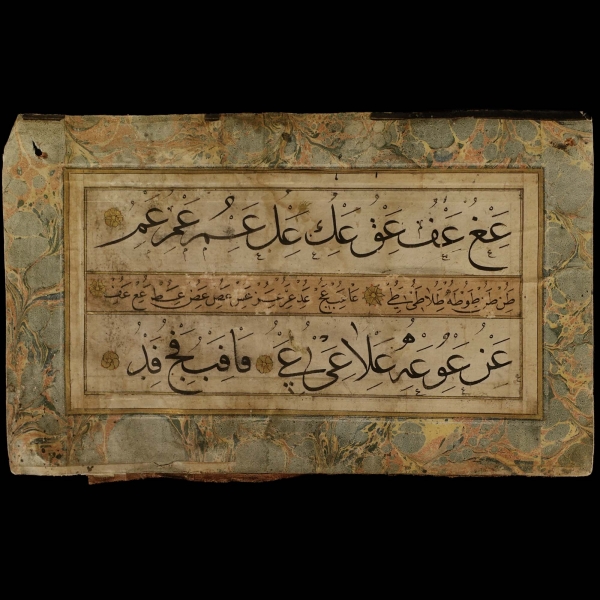 عغ عف عق عك عل عم عم عم
طن طن طو طه طلا طى طے عا عب عج عد عر عس عص عط عع عف
عن عو عه علا عى عے فا فب فج فد